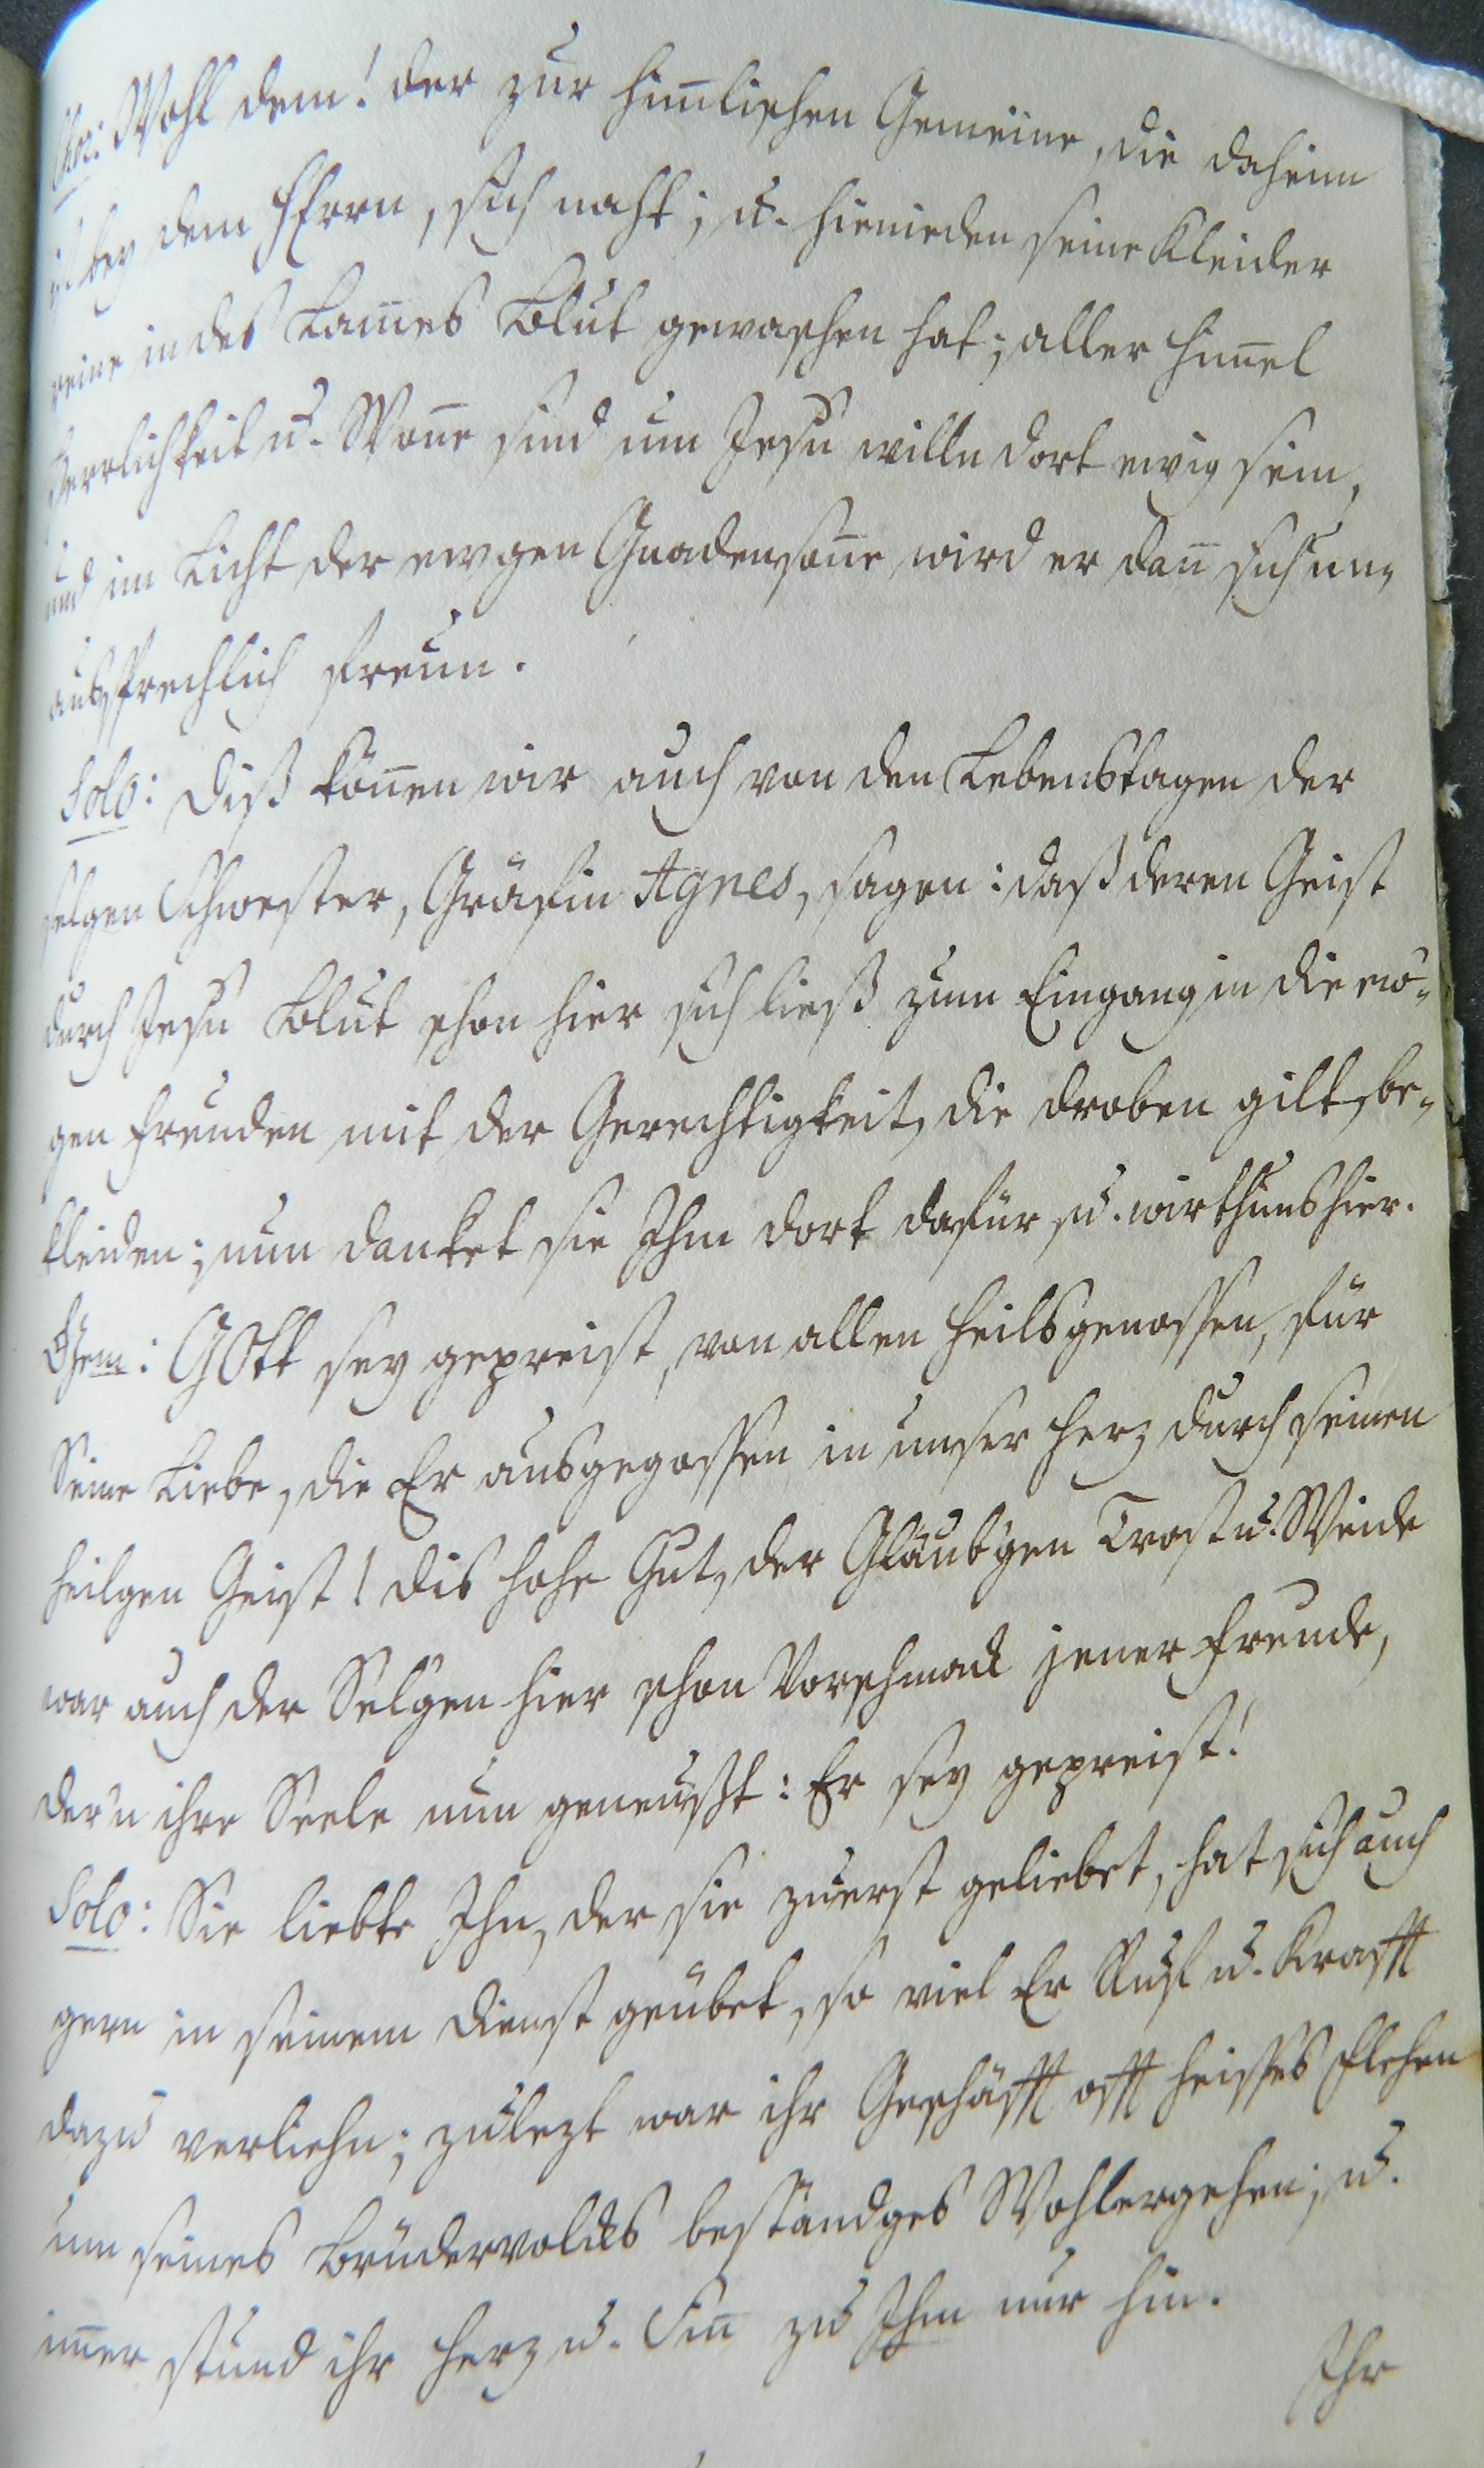 Chor: Wohl dem! der zur him̅lischen Gemeine, die daheim
ist bey dem HErrn, sich naht; u. hienieden seine Kleider
reine in des Lam̅es Blut gewaschen hat; aller Him̅el
Herrlichkeit u. Won̅e sind um Jesu willn dort ewig sein,
und im Licht der ewgen Gnadenson̅e wird er dan̅ sich un-
aussprechlich freun.
Solo: Diß kön̅en wir auch von den Lebenstagen der
selgen Schwester, Gräfin Agnes, sagen: daß deren Geist
durch Jesu Blut schon hier sich ließ zum Eingang in die ew-
gen Freuden mit der Gerechtigkeit, die droben gilt, be-
kleiden; nun danket sie Ihm dort dafür, u. wir thuns hier.
Gem: GOtt sey gepreist, von allen Heilsgenossen, für
Seine Liebe, die Er ausgegossen in unser Herz durch seinen
heilgen Geist! Dis hohe Gut, der Gläub'gen Trost u. Weide
war auch der Sel'gen hier schon Vorschmack jener Freude,
der'n ihre Seele nun geneußt: Er sey gepreist!
Solo: Sie liebte Ihn, der sie zuerst geliebet, hat sich auch
gern in seinem Dienst geübet, so viel Er Ruf u. Krafft
dazu verliehn; zulezt war ihr Geschäfft offt heisses Flehen
um seines Brüdervolcks beständges Wohlergehen; u.
im̅er stund ihr Herz u. Sin̅ zu Ihm nur hin.
Ihr